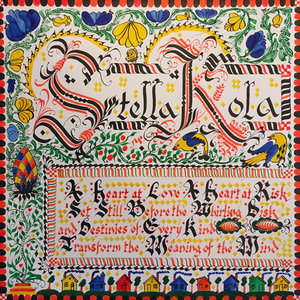 Stella Kola
A Heart at Love A Heart at Risk
Set Still Before the Whirling Disk
And Destinies of Every Kind
Transform the Meaning of the Mind